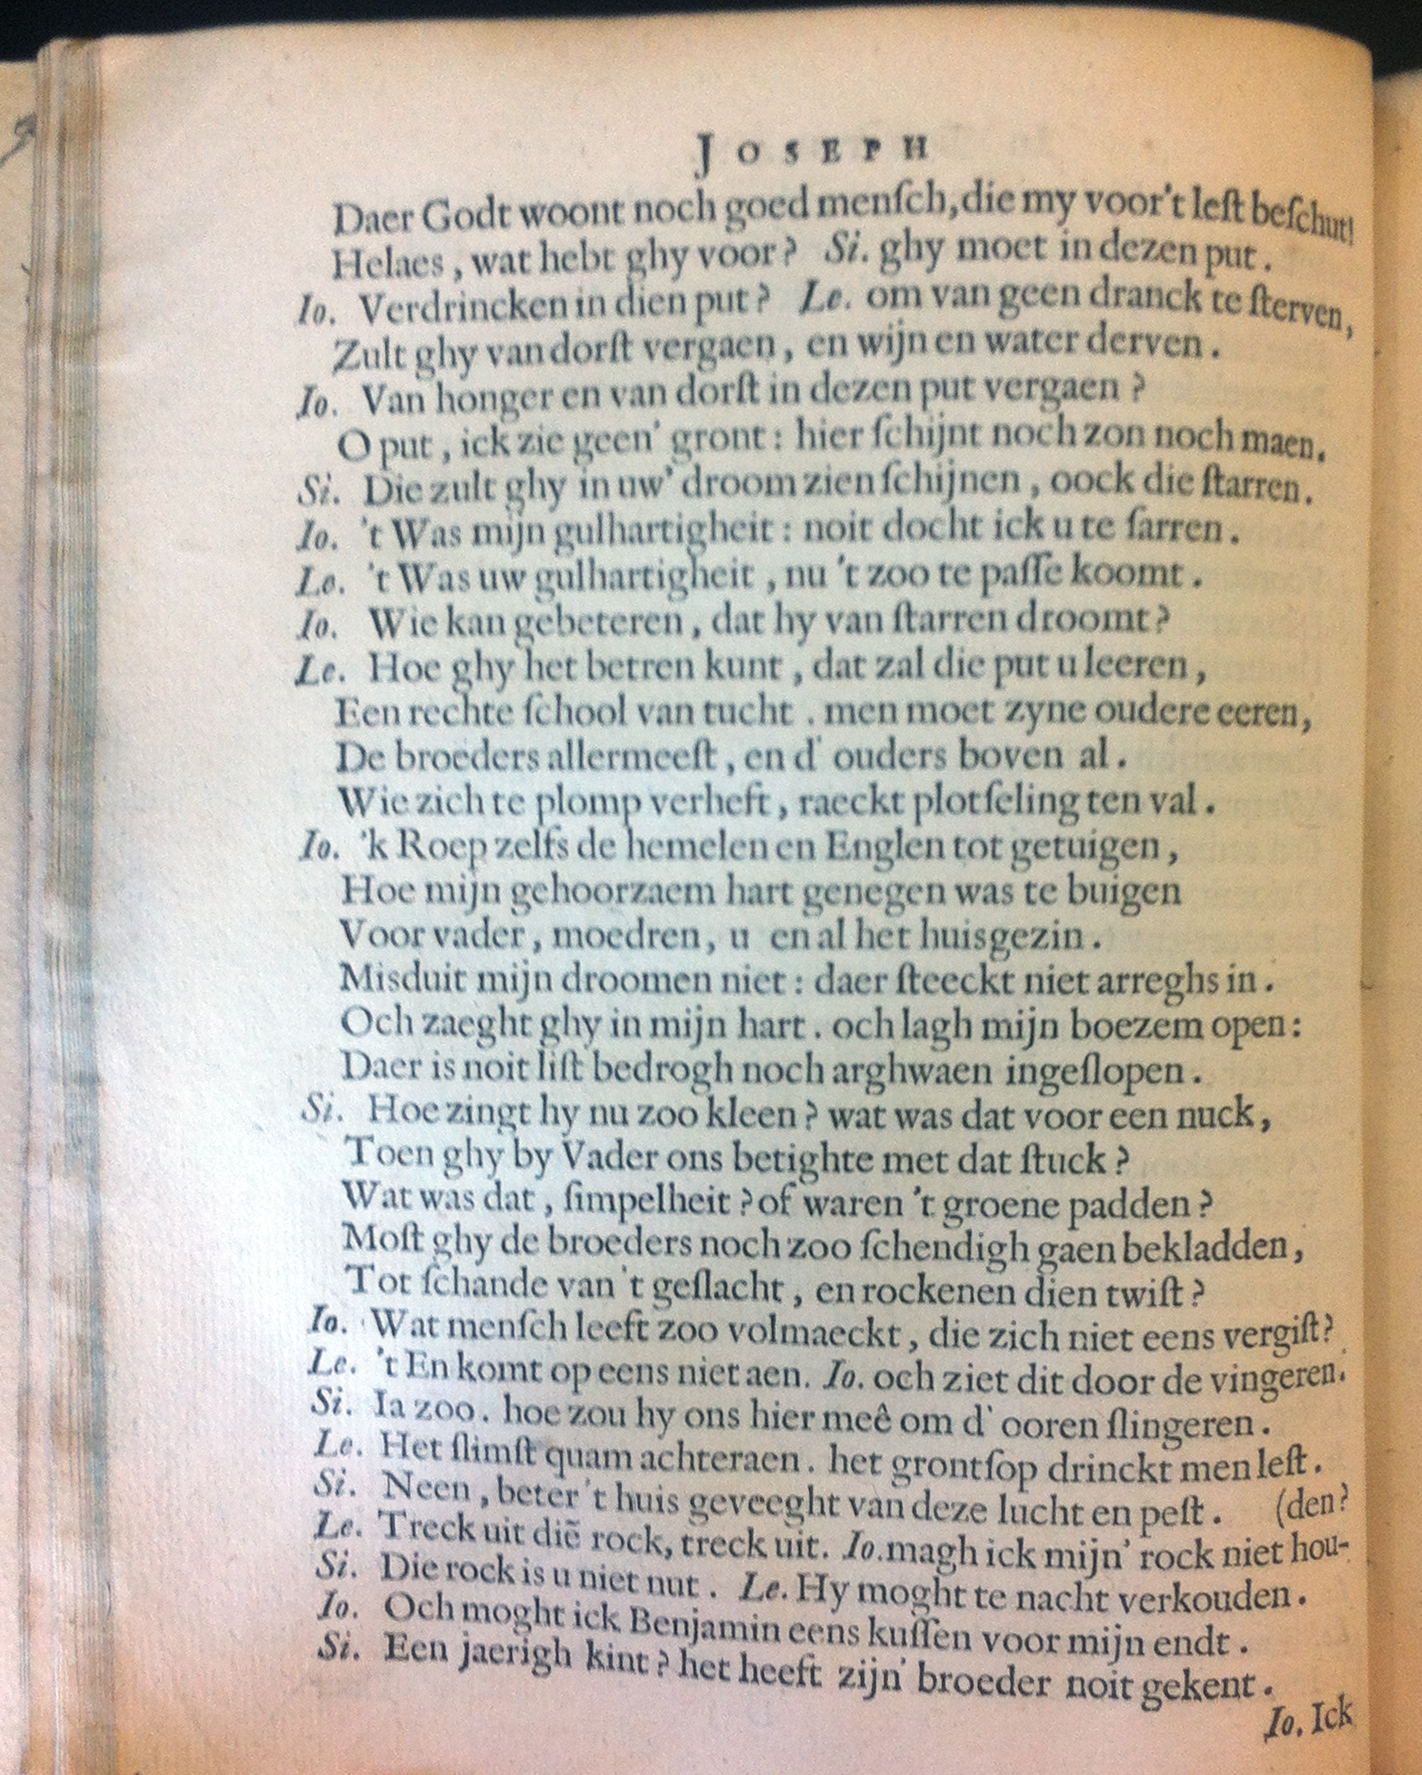 JOSEPH
Daer Godt woont noch goed menſch, die my voor't leſt beſchut!
Helaes, wat hebt ghy voor? Si. ghy moet in dezen put.
Io. Verdrincken in dien put? Le. om van geen dranck te ſterven,
Zult ghy van dorſt vergaen, en wijn en water derven.
Io. Van honger en van dorſt in dezen put vergaen?
O put, ick zie geen' gront: hier ſchijnt noch zon noch maen.
Si. Die zult ghy in uw' droom zien ſchijnen, oock die ſtarren.
Io. 't Was mijn gulhartigheit: noit docht ick u te ſarren.
Le. 't Was uw gulhartigheit, nu 't zoo te paſſe koomt.
Io. Wie kan gebeteren, dat hy van ſtarren droomt?
Le. Hoe ghy het betren kunt, dat zal die put u leeren,
Een rechte ſchool van tucht. men moet zyne oudere eeren,
De broeders allermeeſt, en d' ouders boven al.
Wie zich te plomp verheft, raeckt plotſeling ten val.
Io. 'k Roep zelfs de hemelen en Englen tot getuigen,
Hoe mijn gehoorzaem hart genegen was te buigen
Voor vader, moedren, u en al het huisgezin.
Misduit mijn droomen niet: daer ſteeckt niet arreghs in.
Och zaeght ghy in mijn hart. och lagh mijn boezem open:
Daer is noit liſt bedrogh noch arghwaen ingeſlopen.
Si. Hoe zingt hy nu zoo kleen? wat was dat voor een nuck,
Toen ghy by Vader ons betighte met dat ſtuck?
Wat was dat, ſimpelheit? of waren 't groene padden?
Moſt ghy de broeders noch zoo ſchendigh gaen bekladden,
Tot ſchande van 't geſlacht, en rockenen dien twiſt?
Io. Wat menſch leeft zoo volmaeckt, die zich niet eens vergiſt?
Le. 't En komt op eens niet aen. Io. och ziet dit door de vingeren.
Si. Ia zoo. hoe zou hy ons hier meê om d' ooren ſlingeren.
Le. Het ſlimſt quam achteraen. het grontſop drinckt men leſt.
Si. Neen, beter 't huis geveeght van deze lucht en peſt. (den?
Le. Treck uit diē rock, treck uit. Io. magh ick mijn' rock niet hou-
Si. Die rock is u niet nut. Le. Hy moght te nacht verkouden.
Io. Och moght ick Benjamin eens kuſſen voor mijn endt.
Si. Een jaerigh kint? het heeft zijn' broeder noit gekent.
Io. Ick